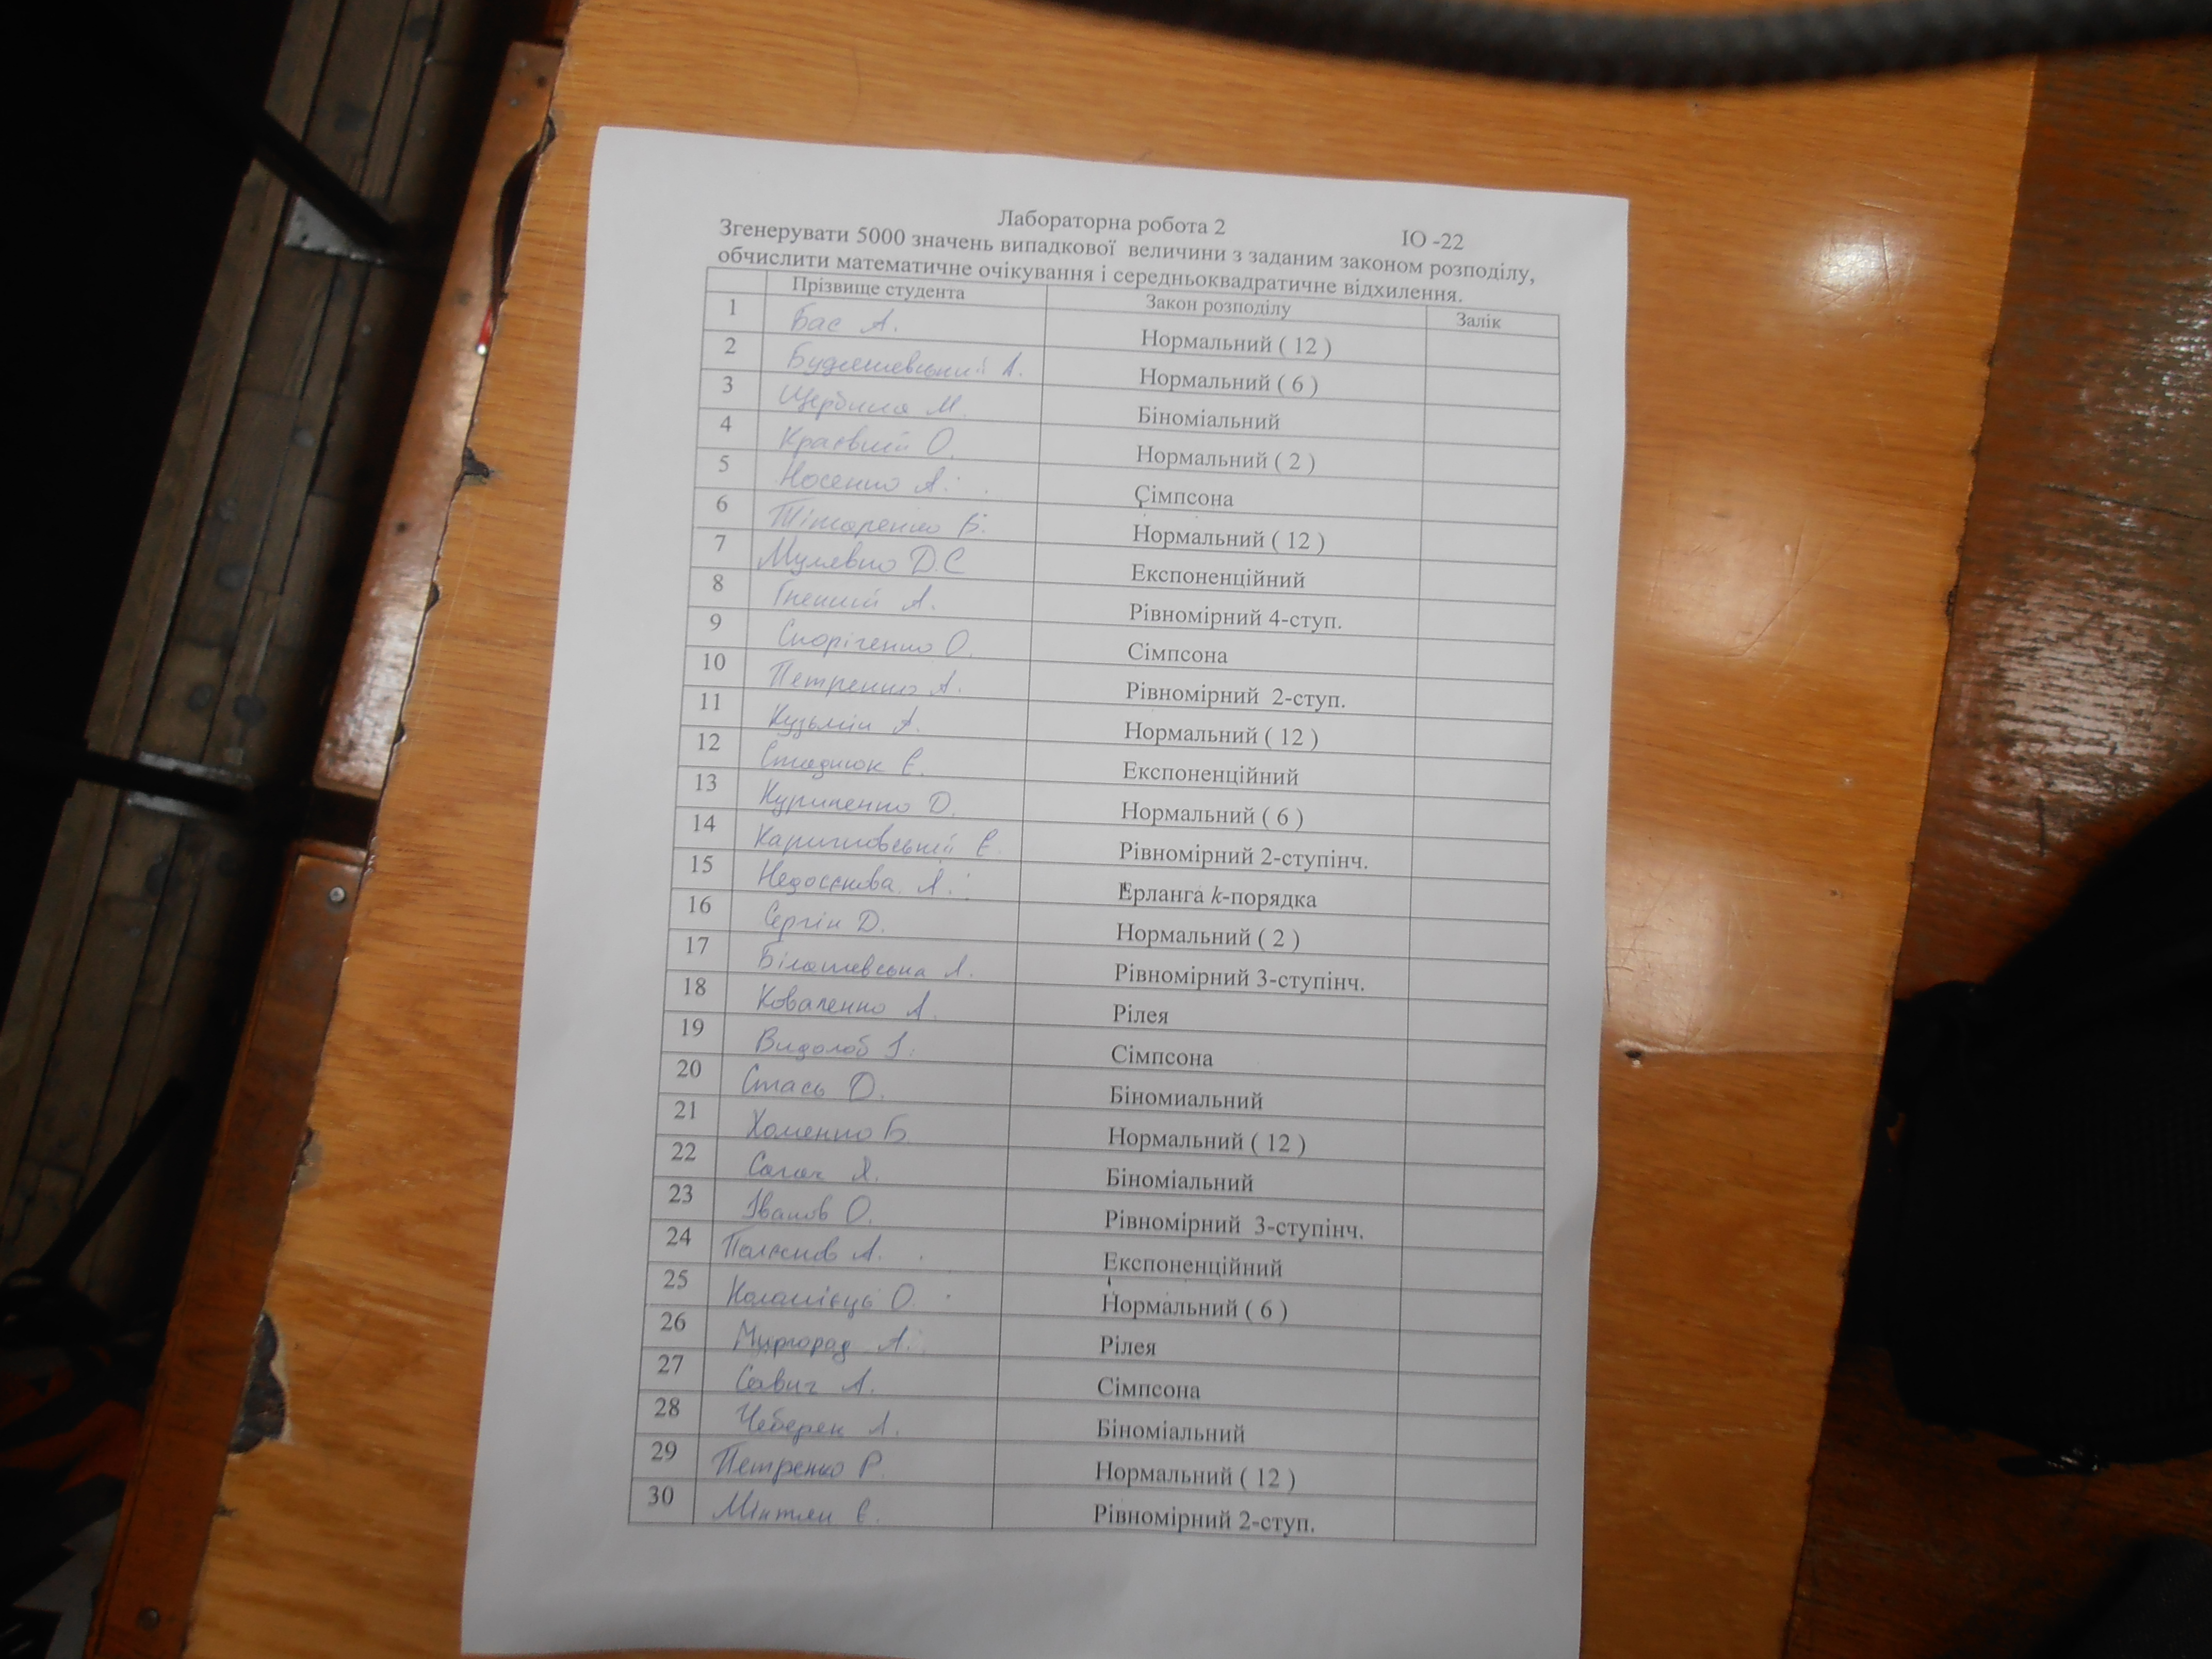 Лабораторна робота 2 ІО -22
Згенерувати 5000 значень випадкової величини з заданим законом розподілу,
обчислити математичне очікування і середньоквадратичне відхилення.
Прізвище студента Закон розподілу Залік
1 Бас А. Нормальний ( 12 )
2 А. Нормальний ( 6 )
3 Щербина М. Біноміальний
4 Краєвий О. Нормальний ( 2 )
5 Носенко А. Сімпсона
6 Тітаренко Б. Нормальний ( 12 )
7 Мулявко Д.С Експоненційний
8 А. Рівномірний 4-ступ.
9 Скоріченко О. Сімпсона
10 Петренко А. Рівномірний 2-ступ.
11 Кузьмін А. Нормальний ( 12 )
12 Стаднюк Є. Експоненційний
13 Куриленко Д. Нормальний ( 6 )
14 Є. Рівномірний 2-ступінч.
15 Недосєкова А. Ерланга k-порядка
16 Сергін Д. Нормальний ( 2 )
17 Білашевська А. Рівномірний 3-ступінч.
18 Коваленко А. Рілея
19 Видолоб І. Сімпсона
20 Стась Д. Біномиальний
21 Хоменко Б. Нормальний ( 12 )
22 Біноміальний
23 Іванов О. Рівномірний 3-ступінч.
24 А. Експоненційний
25 Коломієць О. Нормальний ( 6 )
26 Миргород А. Рілея
27 Савич А. Сімпсона
28 Чеберек А. Біноміальний
29 Петренко Р. Нормальний ( 12 )
30 Є. Рівномірний 2-ступ.